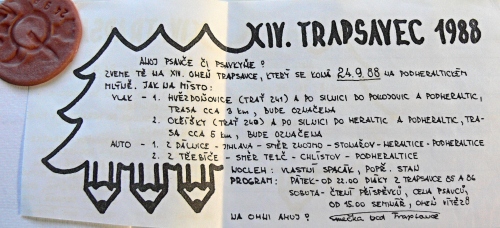 XIV. TRAPSAVEC 1988
AHOJ PSAVČE ČI PSAVKYNĚ?
ZVEME TĚ NA XIV. OHEŇ TRAPSAVCE, KTERÝ SE KONÁ 24.9.88 NA PODHERALTICKÉM
MLÝNĚ. JAK NA MÍSTO:
VLAK - 1. HVĚZDOŇOVICE (TRAŤ 241) A PO SILNICI DO A PODHERALTIC,
TRASA CCA 8 km, BUDE OZNAČENA
2. OKŘÍŠKY (TRAŤ 240) A PO SILNICI DO HERALTIC A PODHERALTIC, TRA-
SA CCA 6 km, BUDE OZNAČENA
AUTO - 1. Z DÁLNICE - JIHLAVA - SMĚR ZNOJMO - STONAŘOV - HERALTICE - PODHERALTICE
2. Z TŘEBÍČE - SMĚR TELČ - CHLÍSTOV - PODHERALTICE
NOCLEH: VLASTNÍ SPACÁK, POPŘ. STAN
PROGRAM: PÁTEK - OD 22.00 DIÁKY Z TRAPSAVCE 85 A 86
SOBOTA - ČTENÍ PŘÍSPĚVKŮ, CENA PSAVCŮ,
OD 15.00 SEMINÁŘ, OHEŇ VÍTĚZŮ
NA OHNI AHOJ!